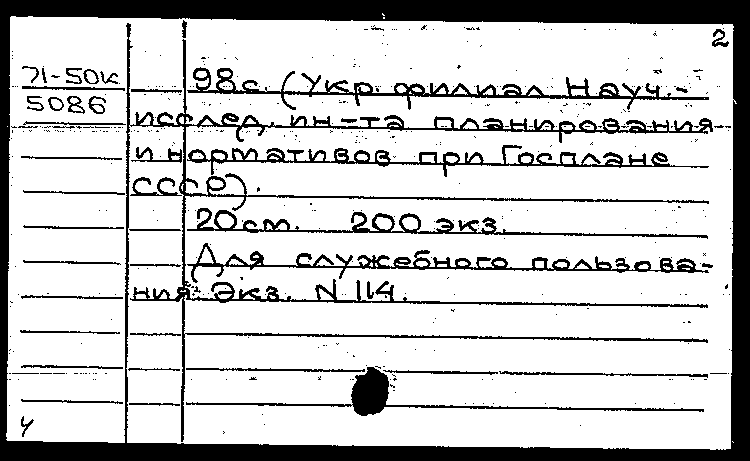 2
71-50к
5086
98с. (Укр. филиал Науч.-
исслед. ин-та планирования
и нормативов при Госплане
СССР).
20см. 200 экз.
Для служебного пользова-
ния. Экз. N 114.